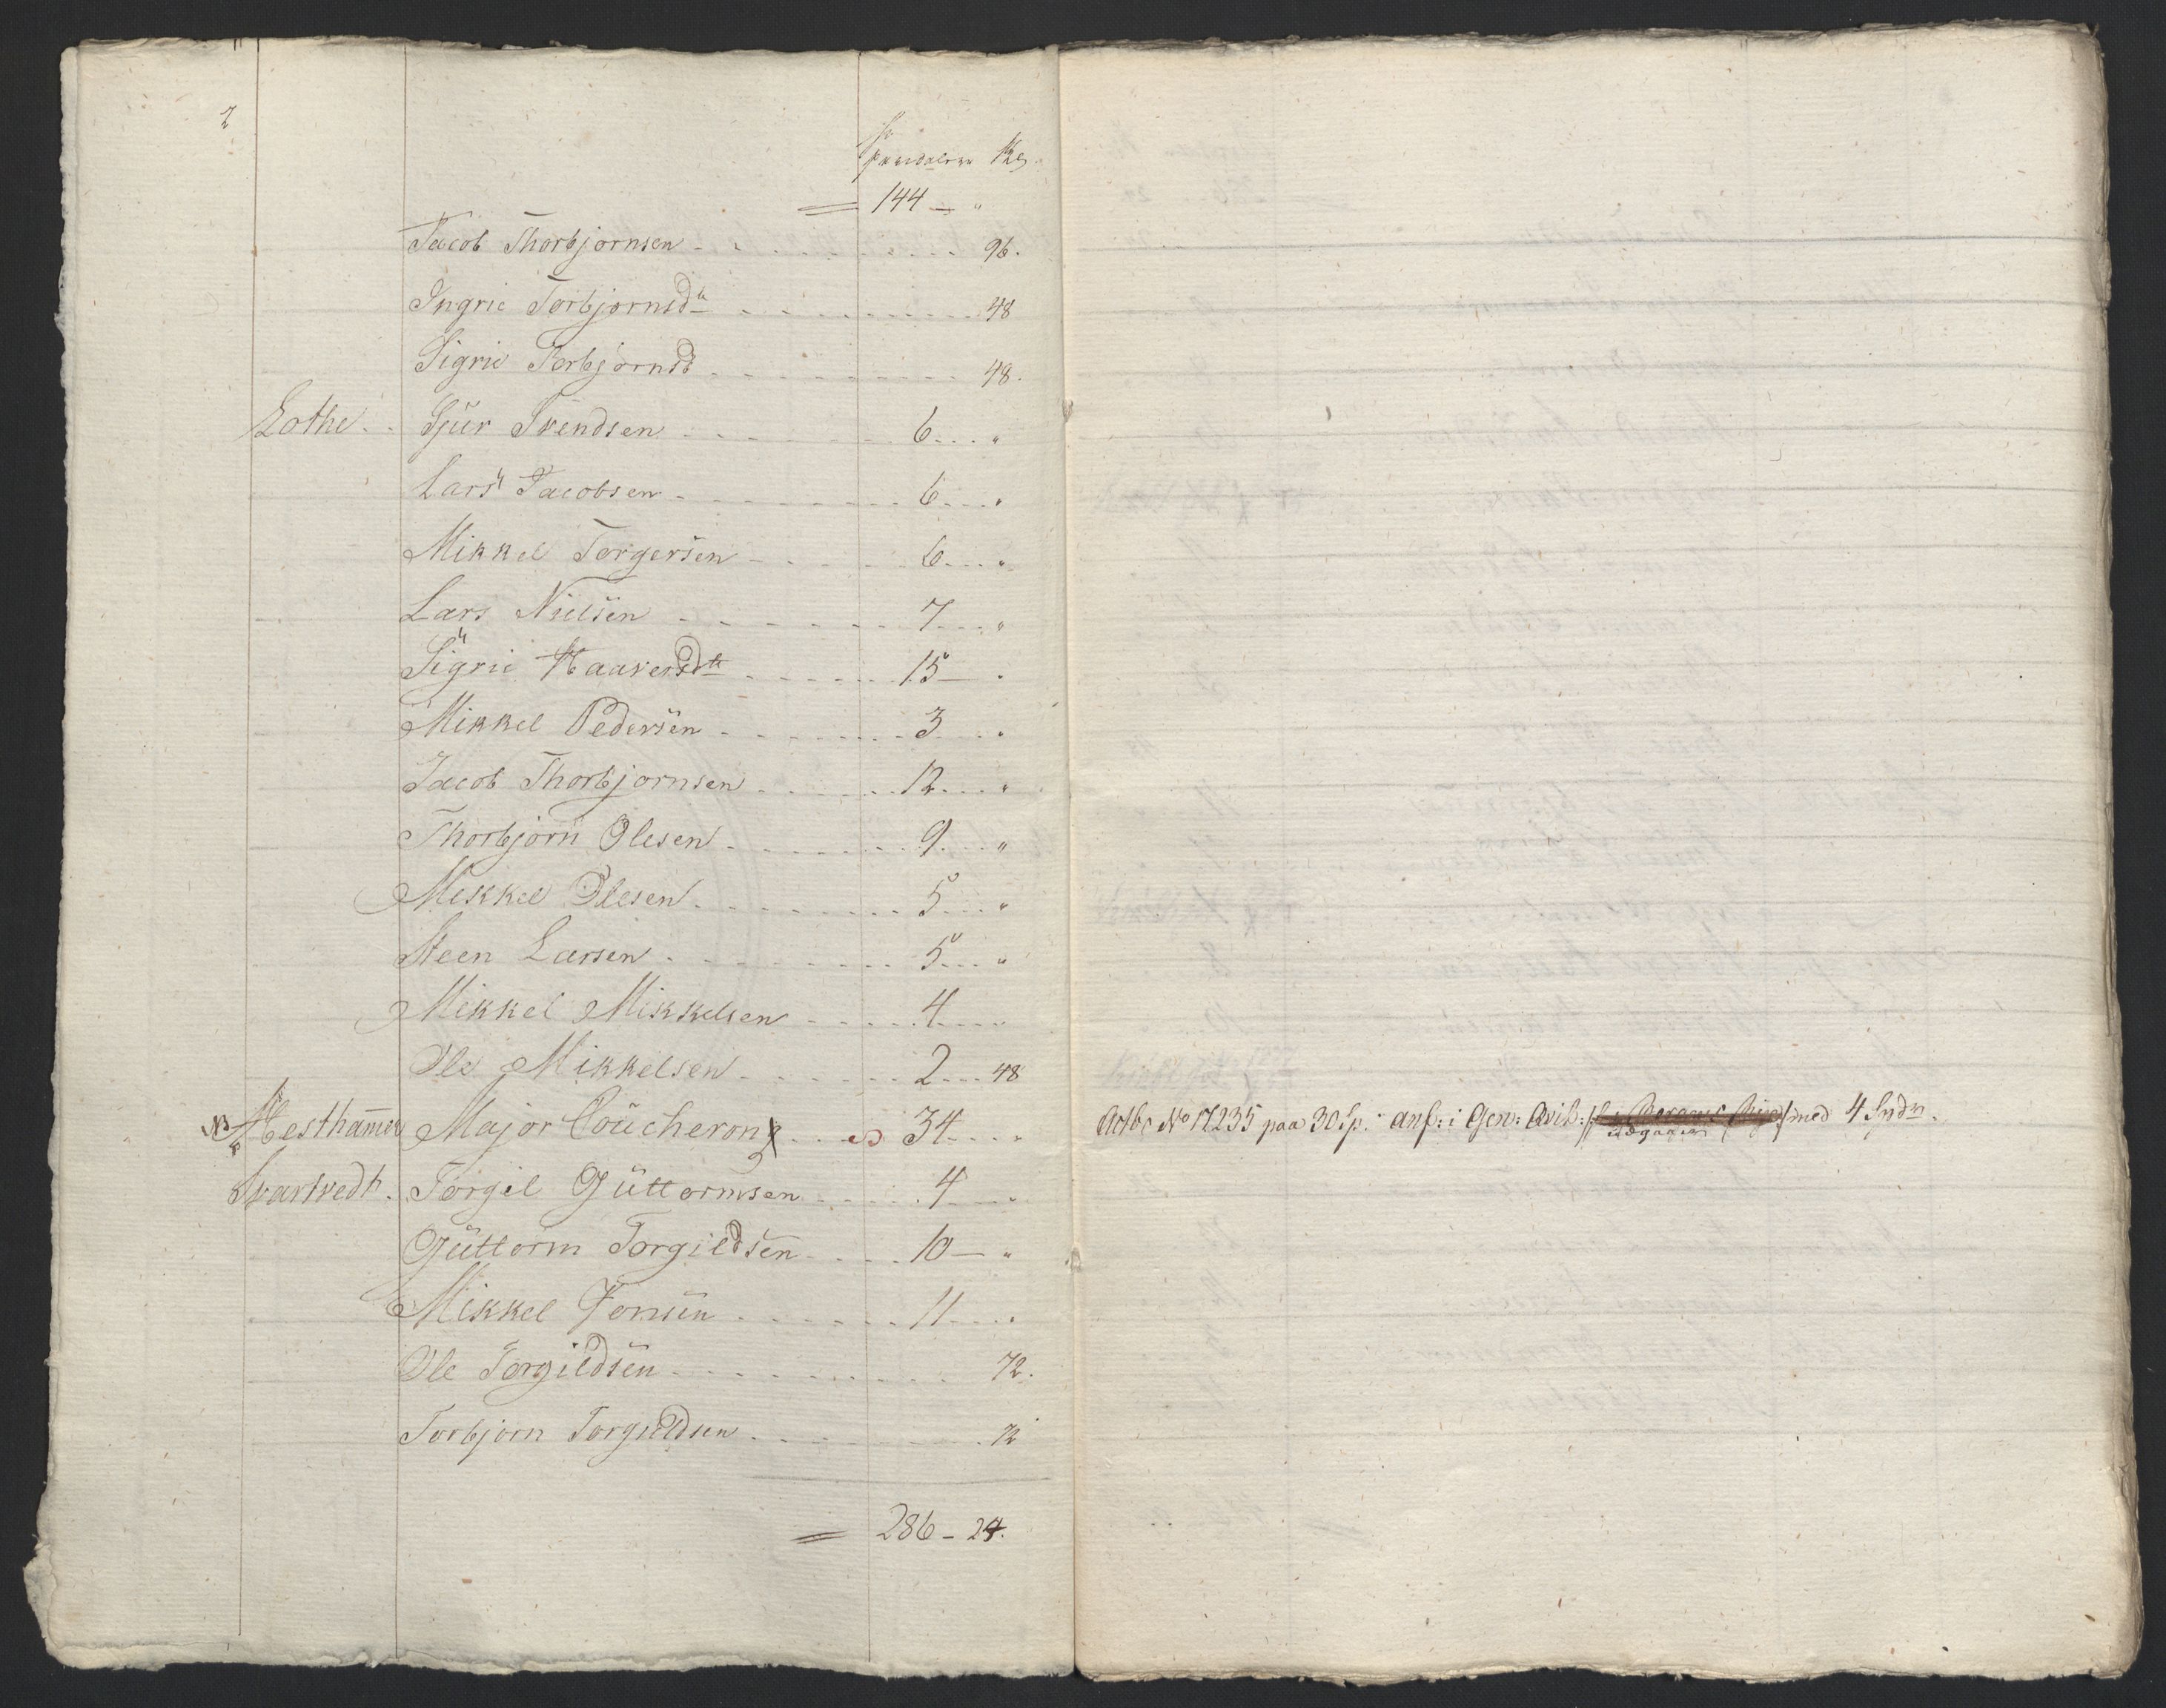 2
Speciedaler ks
= 144 — "
Jacob Thorbjørnsen - - - 96.
Ingrie Torbjørnsdtr - - - 48
Sigrie Torbjørnsdtr - - - 48.
Lothe. - Sjur Svendsen - - - 6 - - "
Lars Jacobsen - - - 6 - - "
Mikkel Torgersen - - - 6 - - "
Lars Nielsen - - - 7 - - "
Sigrie Haaversdtr - - - 15 — "
Mikkel Pedersen - - - 3 - - "
Jacob Thorbjørnsen - - - 12 - - "
Thorbjørn Olesen - - - 9 - - "
Mikkel Olesen - - - 5 - - "
Steen Larsen - - - 5 - - "
Mikkel Mikkelsen - - - 4 - - "
Ole Mikkelsen - - - 2 - - 48
NB Hesthammer Major Coucheron - - - 34 - - "
Svartvedt. Torgil Guttormsen - - - 4 - - "
Guttorm Torgildsen - - - 10 — "
Mikkel Jonsen - - - 11 - - "
Ole Torgildsen - - - 72.
Torbjørn Torgildsen - - - 72
= 286 - 24.
No 17235 paa 30 Sp. anf: i Gen: med 4